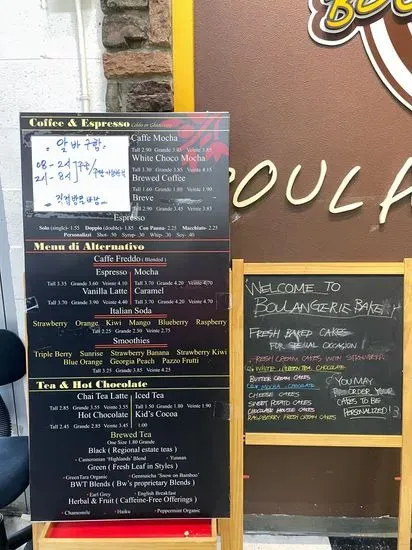 BOU
OULA
Coffee & Espresso
알바구함
Caffe Mocha
Tall 2.90 Grande 3.45 Veinte 3.85
White Choco Mocha
Tall 3.30 Grande 3.85 Veinte 4.15
Brewed Coffee
Tall 1.60 Grande 1.80 Veinte 1.90
Breve
Tall 2.90 Grande 3.45 Veinte 3.85
Espresso
Solo (single)- 1.55 Doppio (double)- 1.85 Con Panna- 2.25 Macchiato- 2.25
Personalizzi Shot- .50 Syrup- .30 Whip- .30 Soy- .40
Menu di Alternativo
Caffe Freddo ( Blended )
Espresso Mocha
Tall 3.35 Grande 3.60 Veinte 4.10 Tall 3.70 Grande 4.20 Veinte 4.70
Vanilla Latte Caramel
Tall 3.70 Grande 3.90 Veinte 4.40 Tall 3.70 Grande 4.20 Veinte 4.70
Italian Soda
Strawberry Orange Kiwi Mango Blueberry Raspberry
Tall 2.25 Grande 2.50 Veinte 2.75
Smoothies
Triple Berry Sunrise Strawberry Banana Strawberry Kiwi
Blue Orange Georgia Peach Pazzo Frutti
Tall 3.25 Grande 3.75 Veinte 4.25
Tea & Hot Chocolate
Chai Tea Latte Iced Tea
Tall 2.85 Grande 3.55 Veinte 3.55 Tall 1.50 Grande 1.80 Veinte 1.90
Hot Chocolate Kid's Cocoa
Tall 2.45 Grande 2.85 Veinte 3.45 1.00
Brewed Tea
One Size 1.80 Grande
Black ( Regional estate teas )
Cameronian 'Highlands' Blend Yunnan
Green ( Fresh Leaf in Styles )
GreenTara Organic Genmaicha 'Snow on Bamboo'
BWT Blends ( Bw's proprietary Blends )
Earl Grey English Breakfast
Herbal & Fruit ( Caffeine-Free Offerings )
Chamomile Haiku Peppermint Organic
WELCOME TO
BOULANGERIE BAKERY
FRESH BAKED CAKES
FOR SPECIAL OCCASION
FRESH CREAM CAKES WITH STRAWBERRY
WHITE GREEN TEA CHOCOLATE
BUTTER CREAM CAKES
MOCHA CHOCOLATE
CHEESE CAKES
SWEET POTATO CAKES
CHOCOLATE MOUSSE CAKES
RASPBERRY FRESH CREAM CAKES
YOU MAY
PREORDER YOUR
CAKES TO BE
PERSONALIZED!